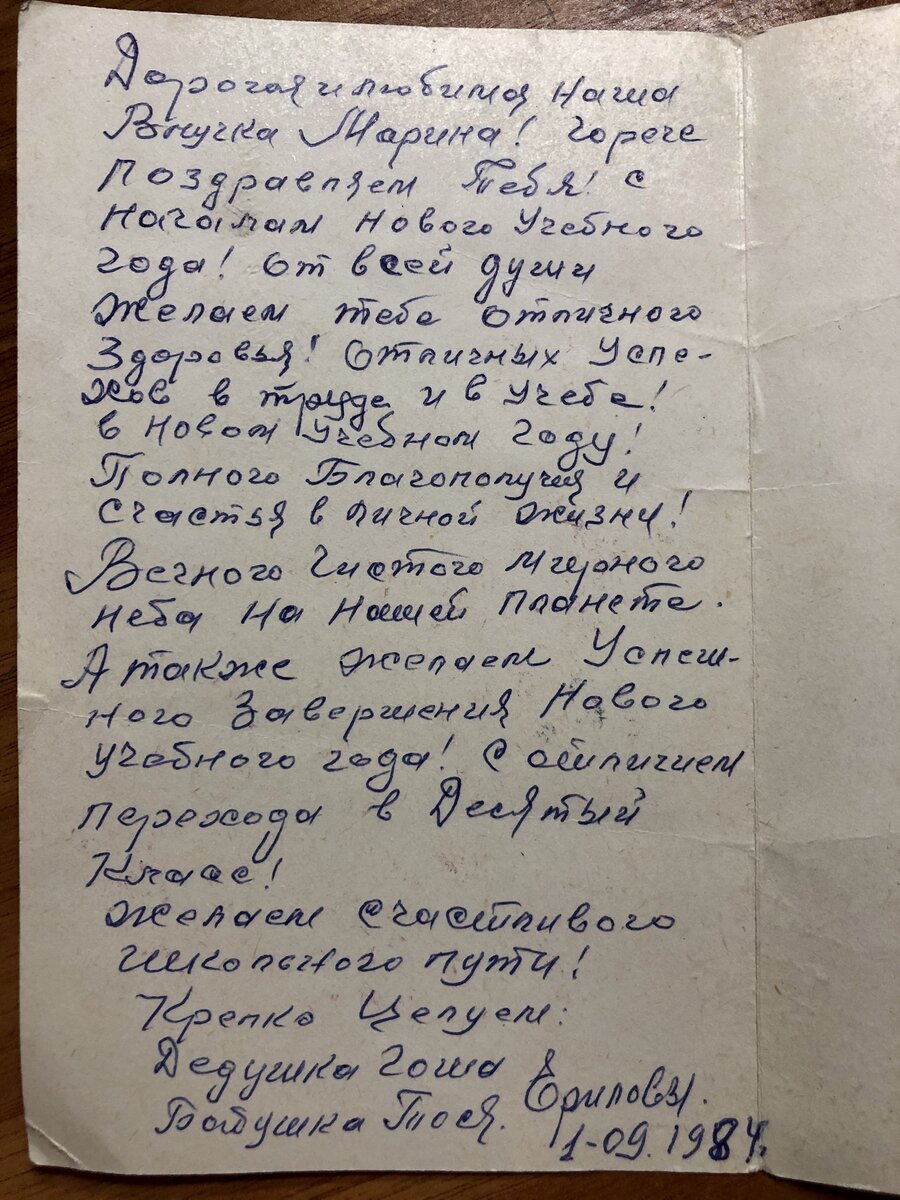 Дорогая и любимая наша
Внучка Марина! Горече
Поздравляем Тебя! с
Началам Нового Учебного
Года! От всей души
Желаем тебе отличного
Здоровья! Отличных Успе-
хов в труде и в Учебе!
в Новом Учебном Году!
Полного Благополучия и
Счастья в личной жизни!
Вечного Чистого Мирного
Неба На Нашей Планете.
А также желаем Успеш-
ного Завершения Нового
Учебного года! С отличием
перехода в Десятый
Класс!
Желаем счастливого
школьного пути!
Крепко Целуем:
Дедушка Гоша
Бабушка Тося. Ериловы.
1-09.1984г.